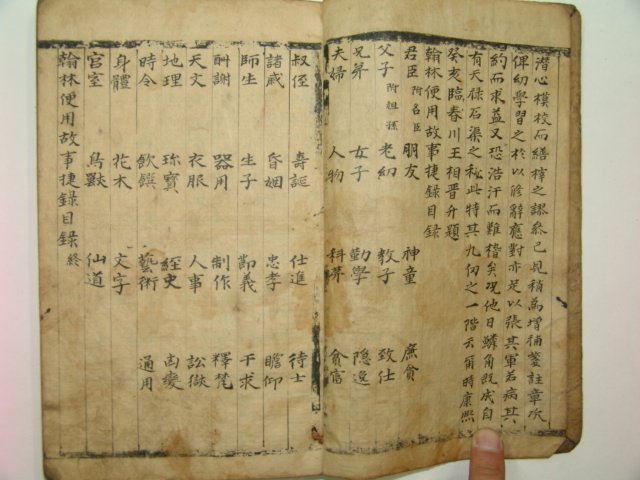 潜心模校而繕梓之謬叅已見稍為增補箋註章次
俾幼學習之於以修辭應對亦足以張其軍若病其
約而求益又恐浩汗而難稽矣况他日麟角既成自
有天祿石渠之秘此特其九仞之一階云爾時康熙
癸亥臨春川王相晋升題
翰林便用故事捷錄目錄
君臣 附名臣 朋友 神童 庶貧
父子 附祖孫 老幼 教子 致仕
兄弟 女子 勤學 隠逸
夫婦 人物 科苐 貧富
叔侄 壽誕 仕進 待士
諸戚 昏姻 忠孝 瞻仰
師生 生子 節義 干求
酧謝 器用 制作 釋梵
天文 衣服 人事 訟獄
地理 珍寶 經史 凶喪
時令 飲饌 藝術 通用
身體 花木 文字
宮室 鳥獸 仙道
翰林便用故事捷錄目錄 終